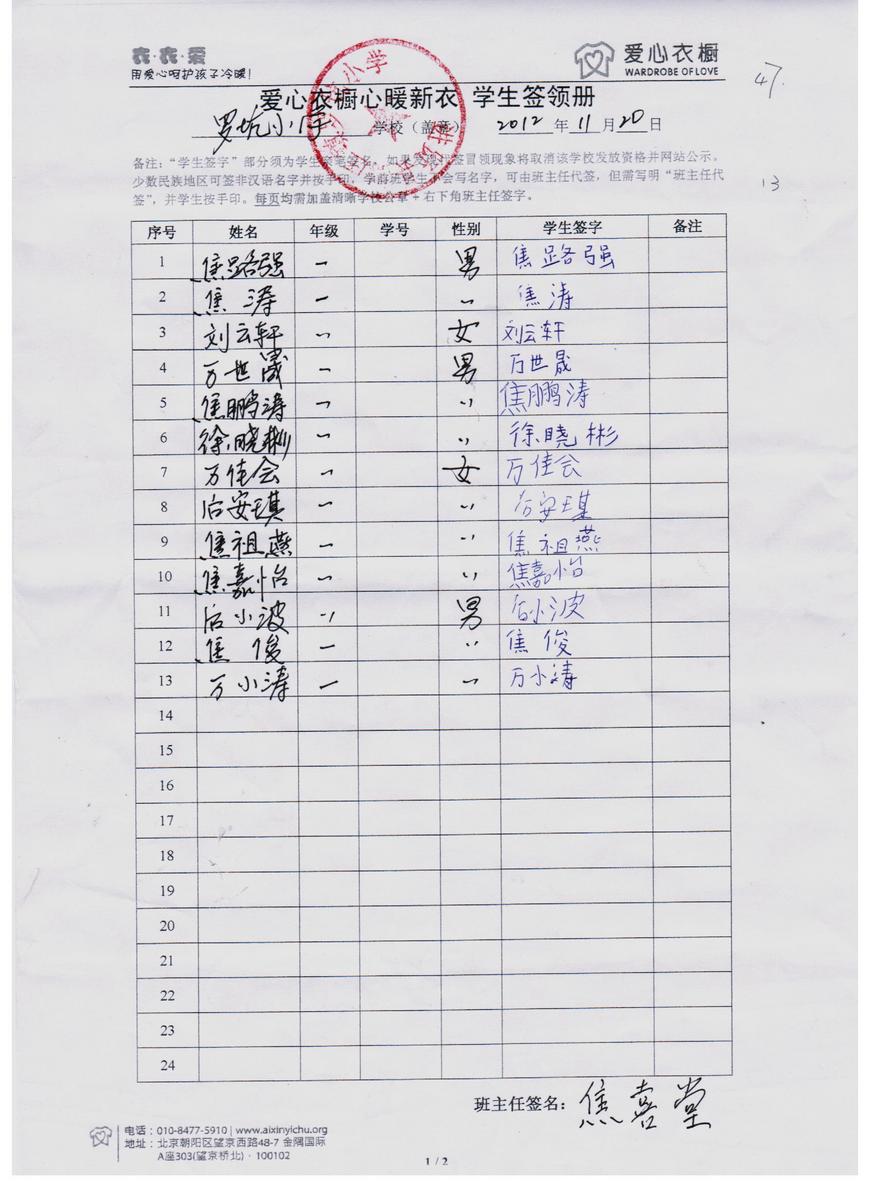 衣·衣·爱
用爱心呵护孩子冷暖!
爱心衣橱
WARDROBE OF LOVE
47
爱心衣橱心暖新衣 学生签领册
罗坑小学 学校（盖章） 2012 年 11 月 20 日
备注：“学生签字”部分须为学生亲笔签名，如果发现代签冒领现象将取消该学校发放资格并网站公示。
少数民族地区可签非汉语名字并按手印，学前班学生不会写名字，可由班主任代签，但需写明“班主任代
签”，并学生按手印。每页均需加盖清晰学校公章+右下角班主任签字。
13
序号 姓名 年级 学号 性别 学生签字 备注
1 焦路强 一 男 焦路强
2 焦涛 一 〃 焦涛
3 刘云轩 〃 女 刘云轩
4 万世晟 一 男 万世晟
5 焦鹏涛 一 〃 焦鹏涛
6 徐晓彬 一 〃 徐晓彬
7 万佳会 一 女 万佳会
8 后安琪 一 〃 后安琪
9 焦祖燕 一 〃 焦祖燕
10 焦嘉怡 一 〃 焦嘉怡
11 后小波 〃 男 后小波
12 焦俊 一 〃 焦俊
13 万小涛 一 〃 万小涛
14
15
16
17
18
19
20
21
22
23
24
班主任签名：焦喜堂
电话：010-8477-5910 | www.aixinyichu.org
地址：北京朝阳区望京西路48-7 金隅国际
A座303(望京桥北)·100102
1 / 2